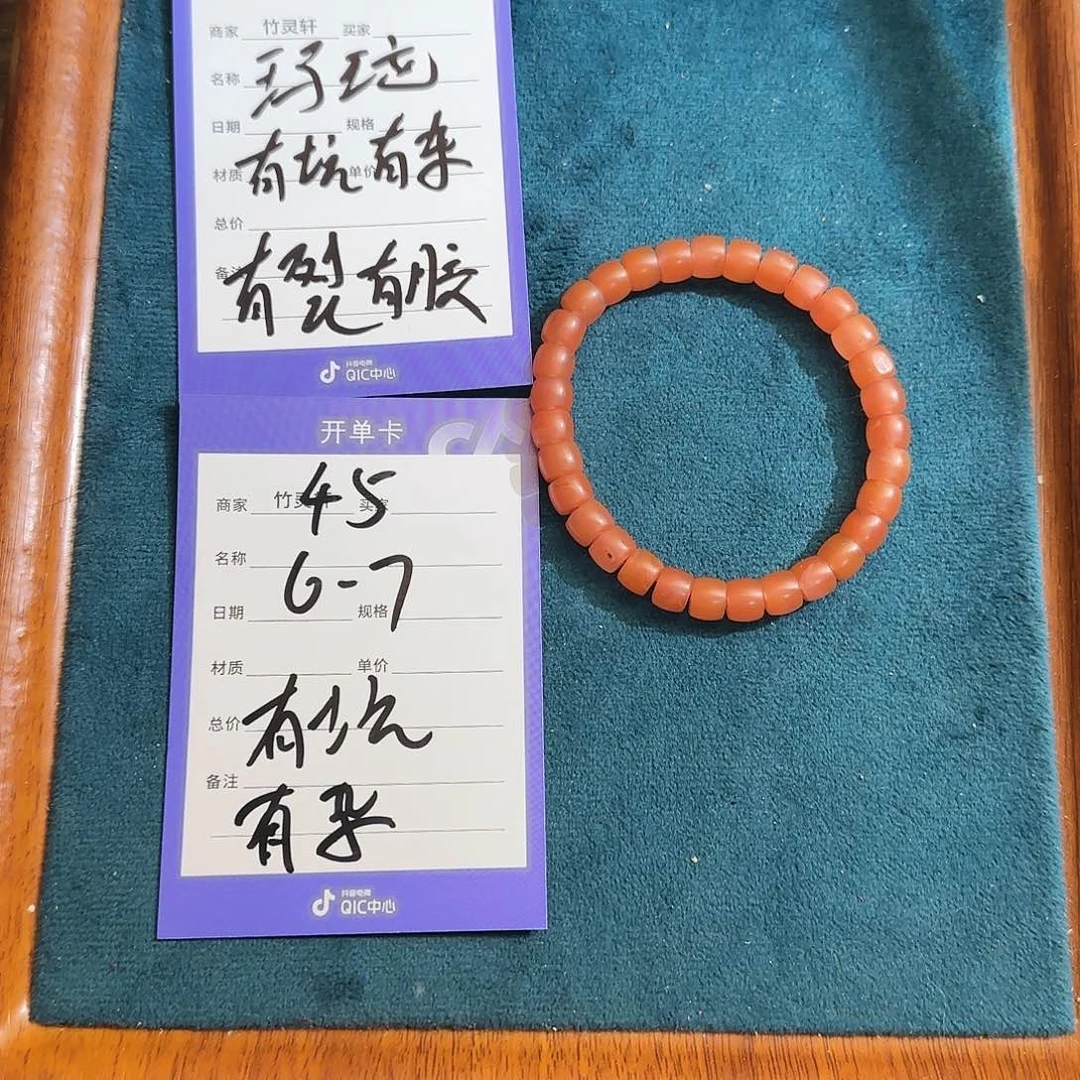 商家 竹灵轩 买家
玛珑
名称
日期 规格
有坑有杂
材质 单价
总价
有裂有胶
备注
抖音电商
QIC中心
开单卡
45
商家 竹灵轩 买家
名称
6-7
日期 规格
材质 单价
有少坑
总价
备注
有孕
抖音电商
QIC中心